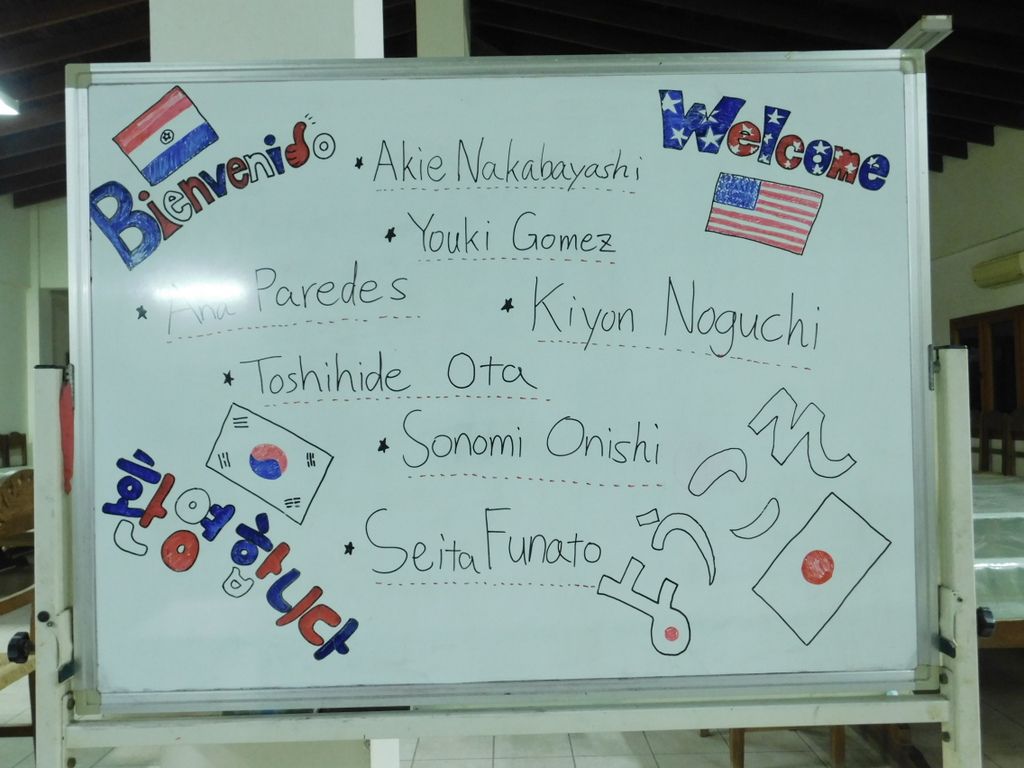 Bienvenido
Welcome
Akie Nakabayashi
Youki Gomez
Ana Paredes
Kiyon Noguchi
Toshihide Ota
Sonomi Onishi
Seita Funato
환영합니다
ようこそ